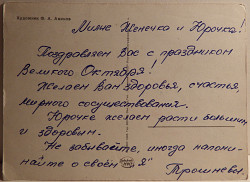 Художник В. А. Анисов
Милые Женечка и Юрочка!
Поздравляем Вас с праздником
Великого Октября!
Желаем Вам здоровья, счастья,
мирного сосуществования.
Юрочке желаем расти большим
и здоровым.
Не забывайте, иногда напоми-
найте о своём "я"
Трошневы